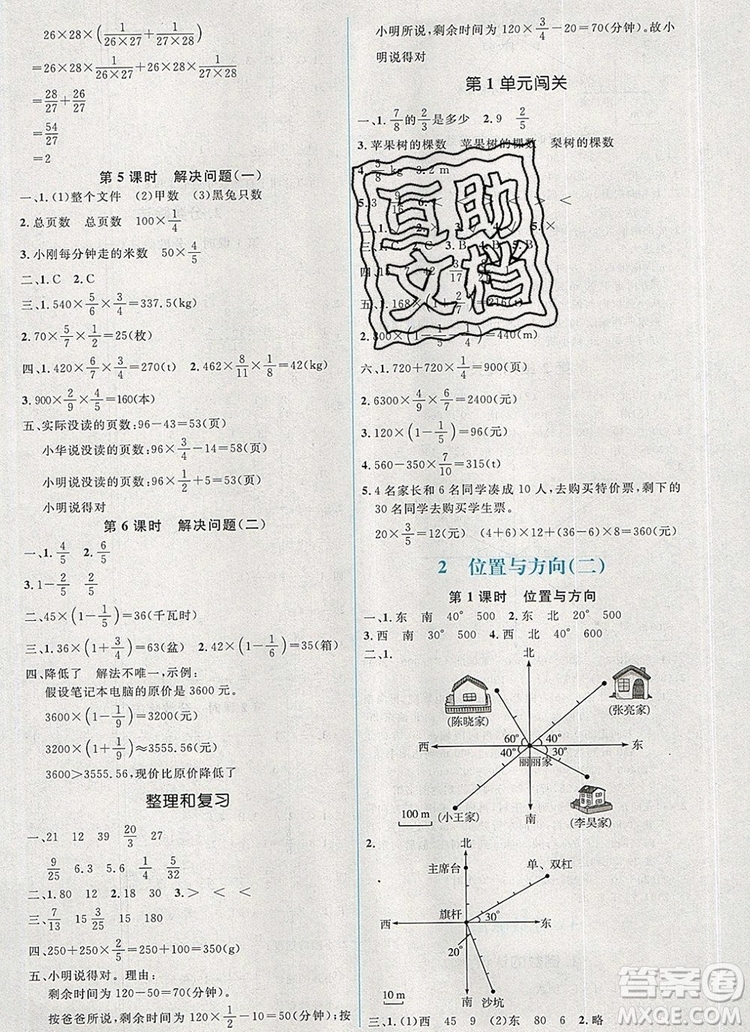 26×28×(1/(26×27)+1/(27×28))
=26×28×1/(26×27)+26×28×1/(27×28)
=28/27+26/27
=54/27
=2
第5课时 解决问题(一)
一、1.(1)整个文件 (2)甲数 (3)黑兔只数
2.总页数 总页数 100×1/4
3.小刚每分钟走的米数 50×4/5
二、1.C 2.C
三、1.540×5/6×3/4=337.5(kg)
2.70×5/7×1/2=25(枚)
四、1.420×6/7×3/4=270(t) 2.462×8/11×1/8=42(kg)
3.900×2/9×4/5=160(本)
五、实际没读的页数:96-43=53(页)
小华说没读的页数:96×3/4-14=58(页)
小明说没读的页数:96×1/2+5=53(页)
小明说得对
第6课时 解决问题(二)
一、1.4/5 2.6/5
3.1-5/8 3/8
二、45×(1-1/5)=36(千瓦时)
三、1.36×(1+3/4)=63(盆) 2.42×(1-1/6)=35(箱)
四、降低了 解法不唯一,示例:
假设笔记本电脑的原价是3600元.
3600×(1-1/9)=3200(元)
3200×(1+1/9)≈3555.56(元)
3600>3555.56,现价比原价降低了
整理和复习
一、21 12 39 20/3 27
9/50 5/8 6/25 1/4 3/5
二、1.80 12 2.180 3.> < <
三、7/13 15 3/25 15 180
四、250+250×2/5=250+100=350(g)
五、小明说得对. 理由:
剩余时间为120-50=70(分钟).
按爸爸所说,剩余时间为120×(1-1/2)=60(分钟);按
小明所说,剩余时间为120×3/4-20=70(分钟).故小
明说得对
第1单元闯关
一、1.7/8的2/3是多少 2.9 2/5
3.苹果树的棵数 苹果树的棵数 梨树的棵数
kg 3.2 m
六、1.720+720×1/4=900(页)
2.6300×4/9×9/10=2520(元)
3.120×(1-1/5)=96(元)
4.560-350×7/10=315(t)
5.4名家长和6名同学凑成10人,去购买特价票,剩下的
30名同学去购买学生票.
20×3/5=12(元) (4+6)×12+(36-6)×8=360(元)
2 位置与方向(二)
第1课时 位置与方向
一、1.东 南 40° 500 2.东 北 20° 500
3.西 南 30° 500 4.西 北 40° 600
二、1.
北
(陈晓家)
(张亮家)
60° 40°
西 东
40° 30°
丽丽家
100 m
(小王家)
南
(李昊家)
2.
北
主席台
单、双杠
旗杆
30°
西 东
20°
10 m
南 沙坑
三、1.(1)西 南 45 9 (2)东 南 80 6 2.略
答案圈
MXQE.COM
互助
文档